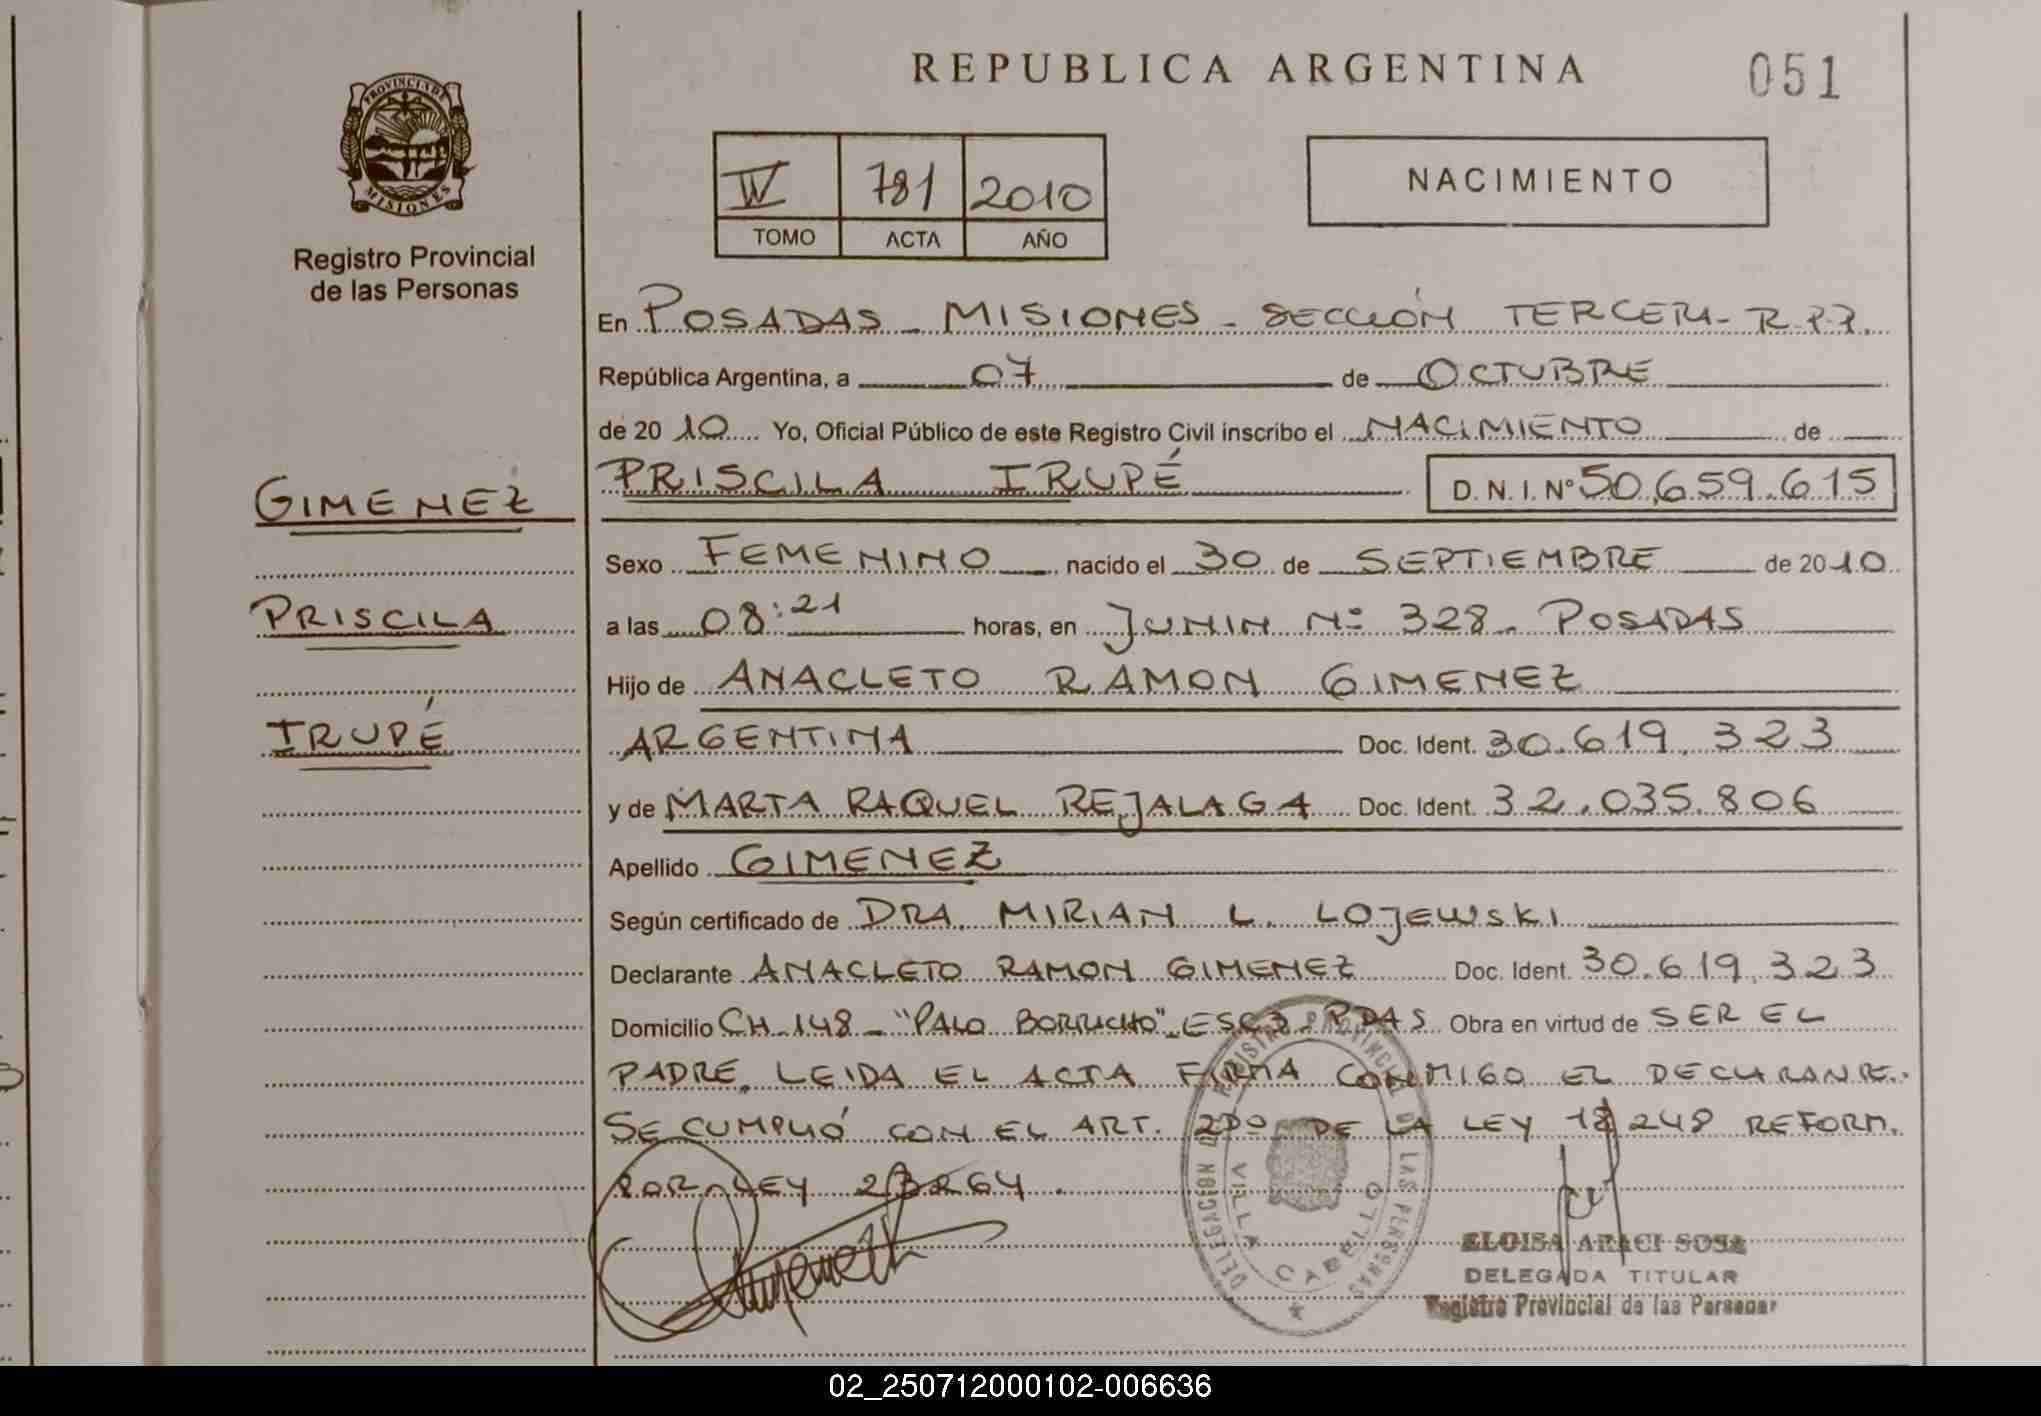 REPUBLICA ARGENTINA
051
PROVINCIA DE
MISIONES
Registro Provincial
de las Personas
IV 781 2010
TOMO ACTA AÑO
NACIMIENTO
En POSADAS - MISIONES - SECCIÓN TERCERA - R.P.P.
República Argentina, a 07 de OCTUBRE
de 2010 Yo, Oficial Público de este Registro Civil inscribo el NACIMIENTO de
PRISCILA IRUPÉ D.N.I. Nº 50.659.615
GIMENEZ
PRISCILA
IRUPÉ
Sexo FEMENINO nacido el 30 de SEPTIEMBRE de 2010
a las 08:21 horas, en JUNIN Nº 328 - POSADAS
Hijo de ANACLETO RAMON GIMENEZ
ARGENTINA Doc. Ident. 30.619.323
y de MARTA RAQUEL REJALAGA Doc. Ident. 32.035.806
Apellido GIMENEZ
Según certificado de DRA. MIRIAN L. LOJEWSKI
Declarante ANACLETO RAMON GIMENEZ Doc. Ident. 30.619.323
Domicilio CH. 148 - "PALO BORRACHO" - ESC 3 - PDAS Obra en virtud de SER EL
PADRE. LEIDA EL ACTA FIRMA CONMIGO EL DECLARANTE.
SE CUMPLIÓ CON EL ART. 2DO DE LA LEY 18248 REFORM.
POR LEY 23264.
DELEGACION DEL REGISTRO PROVINCIAL DE LAS PERSONAS
VILLA CABELLO
ELOISA ARACI SOSA
DELEGADA TITULAR
Registro Provincial de las Personas
02_250712000102-006636